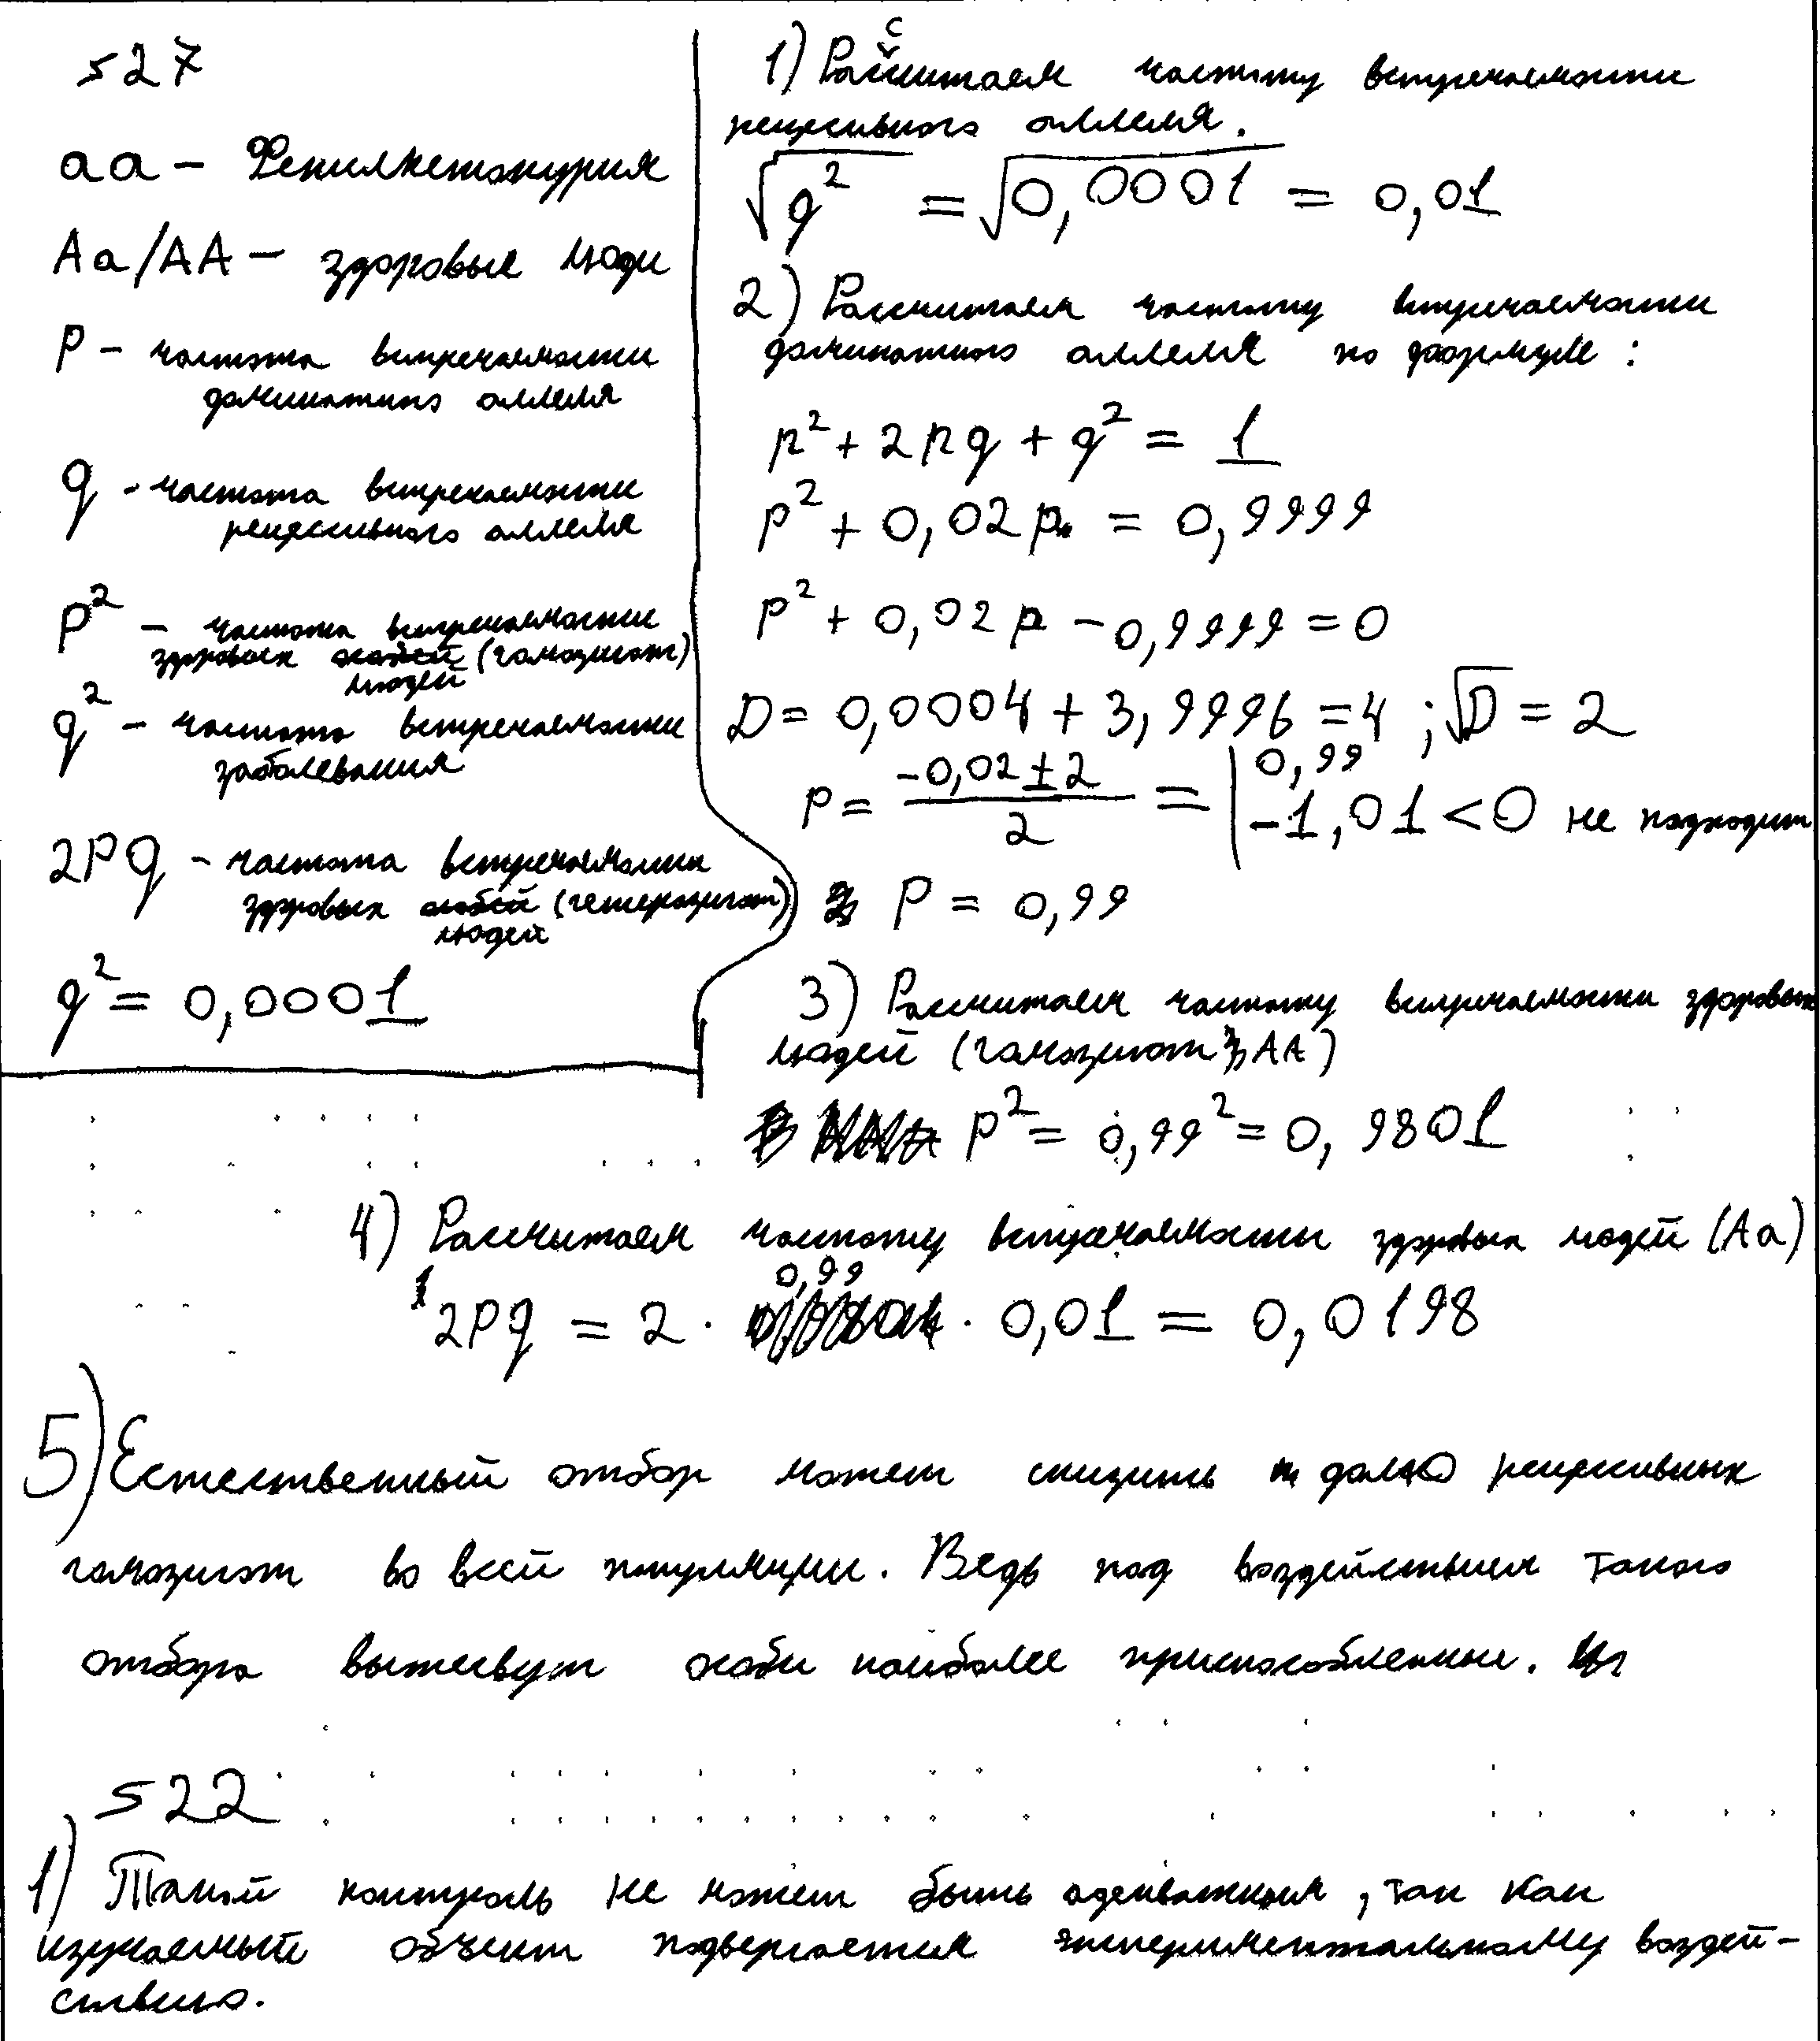 s27
aa – Фенилкетонурия
Aa/AA – здоровые люди
P – частота встречаемости
доминатного аллеля
q - частота встречаемости
рецессивного аллеля
p² – частота встречаемости
здоровых людей (гомозигот)
q² – частота встречаемости
заболевания
2Pq - частота встречаемости
здоровых людей (гетерозигот)
q² = 0,0001
1) Рассчитаем частоту встречаемости
рецесивного аллеля.
√q² = √0,0001 = 0,01
2) Рассчитаем частоту встречаемости
доминатного аллеля по формуле:
p² + 2pq + q² = 1
p² + 0,02p = 0,9999
p² + 0,02p – 0,9999 = 0
D = 0,0004 + 3,9996 = 4 ; √D = 2
P = (-0,02 ± 2)/2 = | 0,99
-1,01 < 0 не подходит
P = 0,99
3) Рассчитаем частоту встречаемости здоровых
людей (гомозигот AA)
p² = 0,99² = 0,9801
4) Рассчитаем частоту встречаемости здоровых людей (Aa)
2Pq = 2 · 0,99 · 0,01 = 0,0198
5) Естественный отбор может снизить долю рецесивных
гомозигот во всей популяции. Ведь под воздействием такого
отбора выживут особи наиболее приспособленные.
s22
1) Такой контроль не может быть адекватным, так как
изучаемый объект подвергается экспериментальному воздей-
ствию.